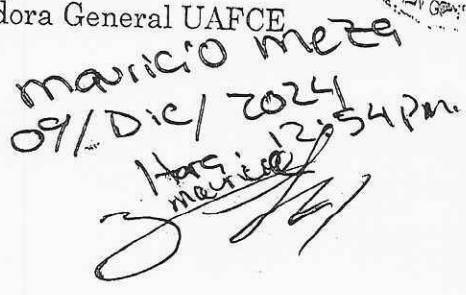 dora General UAFCE
mauricio meza
09/Dic/2024
Hora 12:54 Pm.
mauricio